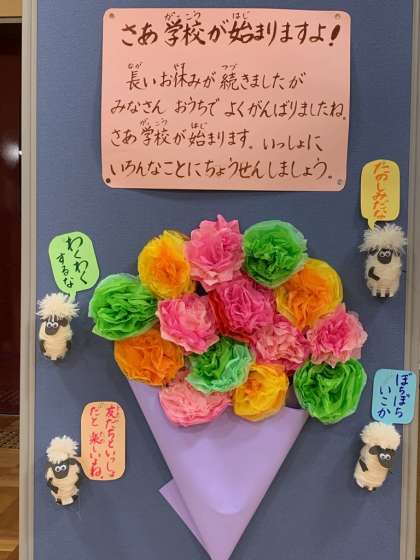 さあ学校が始まりますよ！
長いお休みが続きましたが
みなさん おうちで よくがんばりましたね。
さあ学校が始まります。いっしょに
いろんなことにちょうせんしましょう。
たのしみだな
わくわく
するな
ぼちぼち
いこか
友だちといっしょ
だと楽しいよね。